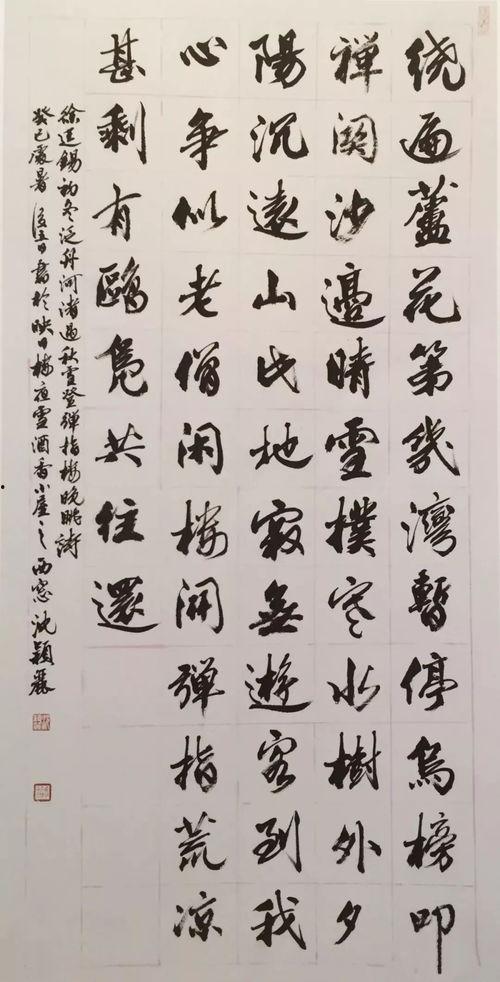 绕遍蘆花第幾灣暫停烏榜叩
禪関沙邊晴雪撲寒水樹外夕
陽沉遠山此地寂無遊客到我
心争似老僧闲樓開彈指荒凉
甚剩有鷗凫共往還
徐廷錫初冬泛舟河渚過秋雪登彈指樓晚眺詩
癸巳處暑後日書於映月樓夜雪酒香小屋之西窓沈穎麗